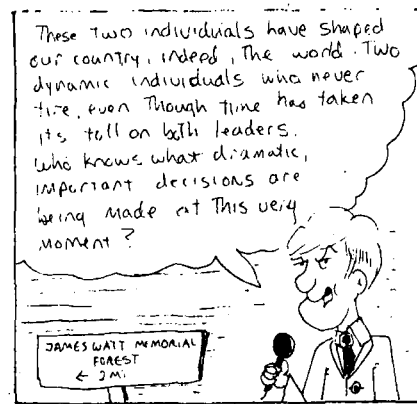 These Two individuals have shaped
our country, indeed, The world. Two
dynamic individuals who never
tire, even Though time has taken
its toll on both leaders.
Who knows what dramatic,
important decisions are
being made at This very
moment?
JAMES WATT MEMORIAL
FOREST
← 2 Mi.